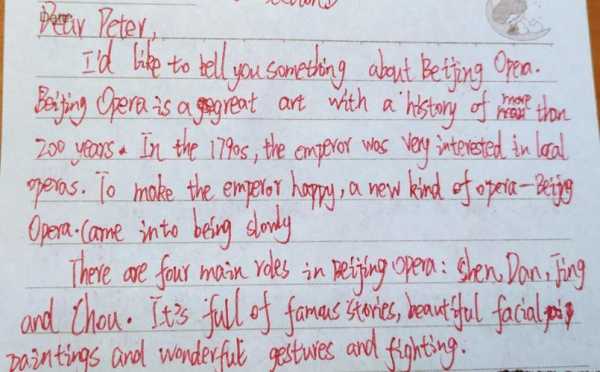 Dear Peter,
I'd like to tell you something about Beijing Opera.
Beijing Opera is a great art with a history of more than
200 years. In the 1790s, the emperor was very interested in local
operas. To make the emperor happy, a new kind of opera—Beijng
Opera. came into being slowly
There are four main roles in Beijing Opera: Shen, Dan, Jing
and Chou. It's full of famous stories, beautiful facial
paintings and wonderful gestures and fighting.